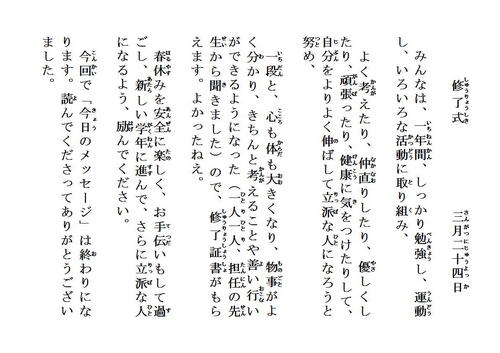 修了式　　三月二十四日
みんなは、一年間、しっかり勉強し、運動
し、いろいろな活動に取り組み、
よく考えたり、仲直りしたり、優しくし
たり、頑張ったり、健康に気をつけたりして、
自分をよりよく伸ばして立派な人になろうと
努め、
一段と、心も体も大きくなり、物事がよ
く分かり、きちんと考えることや善い行い
ができるようになった（一人一人、担任の先
生から聞きました）ので、修了証書がもら
えます。よかったねえ。
春休みを安全に楽しく、お手伝いもして過
ごし、新しい学年に進んで、さらに立派な人
になるよう、励んでください。
今回で「今日のメッセージ」は終わりにな
ります。読んでくださってありがとうござい
ました。